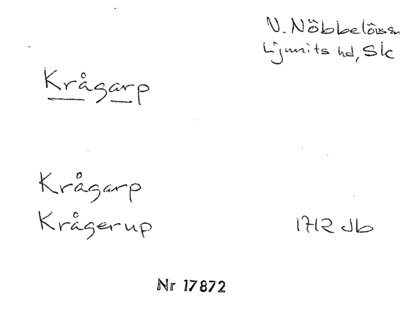 V. Nöbbelöv sn
Ljunits hd, Sk
Krågarp
Krågarp
Krågerup 1712 Jb
Nr 17872